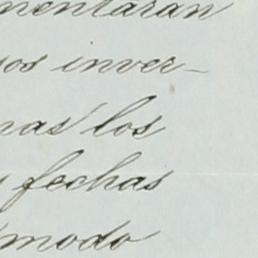 mentaran
sos inver-
nas los
y fechas
modo